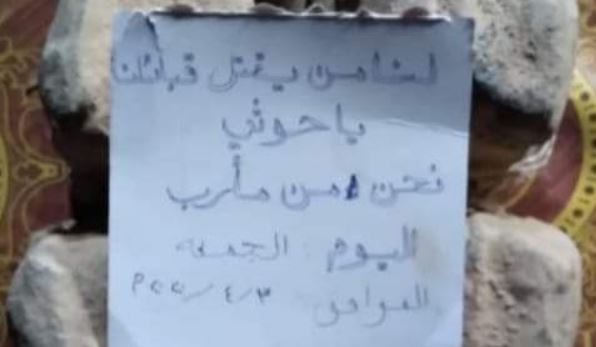 لسنا من يقتل قبائلنا
يا حوثي
نحن من مأرب
اليوم : الجمعه
الموافق ٣/٤/٢٠٢٠